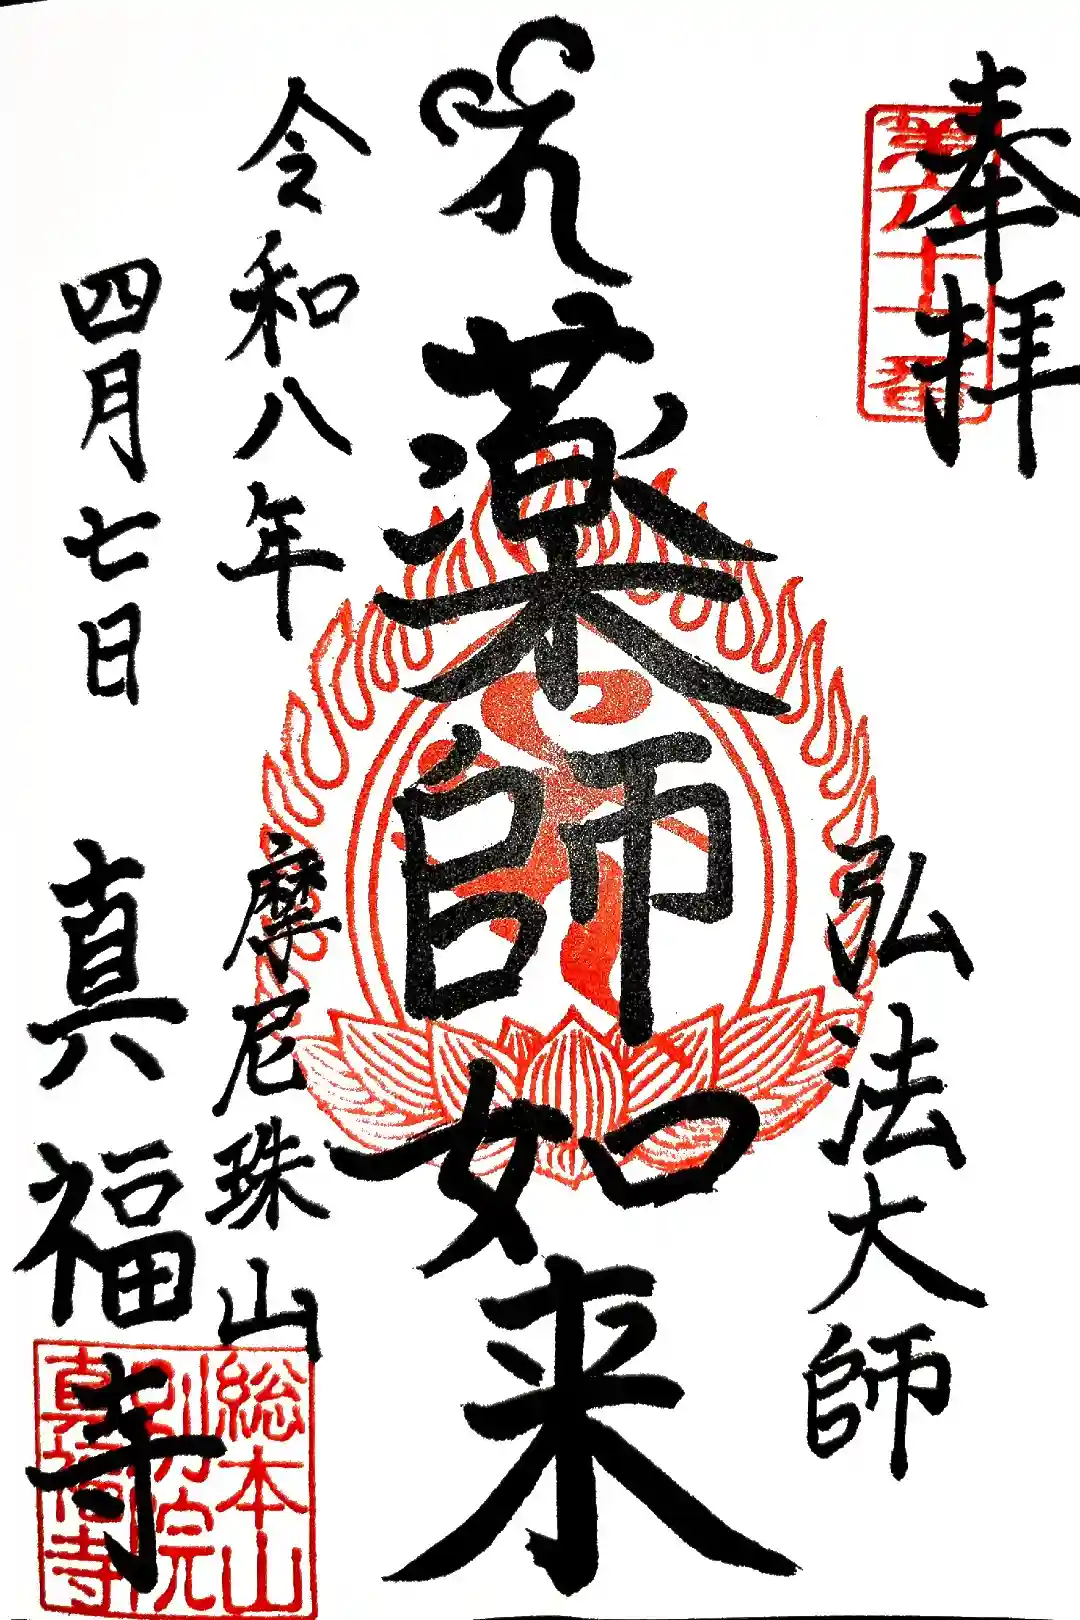 奉拝
第六十一番
弘法大師
薬師如来
令和八年
四月七日
摩尼珠山
真福寺
総本山
別院
真福寺